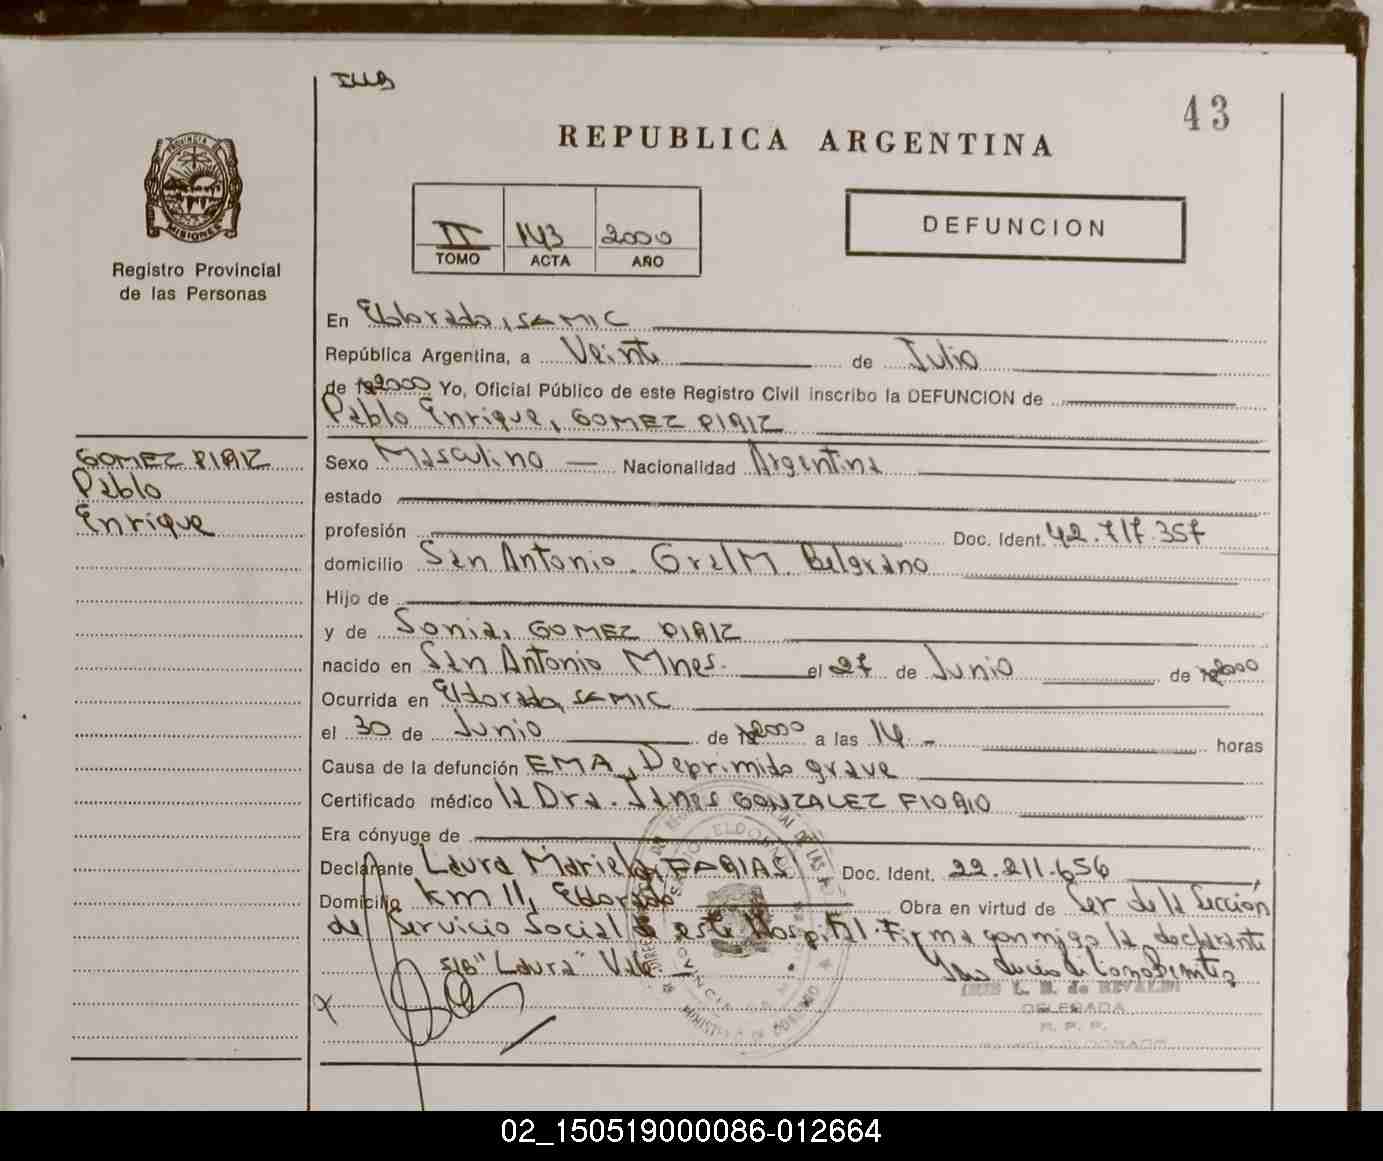 IUB
43
PROVINCIA DE
MISIONES
Registro Provincial
de las Personas
REPUBLICA ARGENTINA
II 143 2000
TOMO ACTA AÑO
DEFUNCION
En Eldorado, SAMIC
República Argentina, a Veinte de Julio
de 2000 Yo, Oficial Público de este Registro Civil inscribo la DEFUNCION de
Pablo Enrique, GOMEZ PIRIZ
GOMEZ PIRIZ
Pablo
Enrique
Sexo Masculino — Nacionalidad Argentina
estado
profesión Doc. Ident. 42.717.357
domicilio San Antonio. Gral M. Belgrano
Hijo de
y de Sonia, GOMEZ PIRIZ
nacido en San Antonio Mnes. el 27 de Junio de 2000
Ocurrida en Eldorado, SAMIC
el 30 de Junio de 2000 a las 14 - horas
Causa de la defunción EMA, Deprimido grave
Certificado médico la Dra. Ianes GONZALEZ FIORIO
Era cónyuge de
Declarante Laura Mariela, FARIAS Doc. Ident. 22.211.656
Domicilio km 11, Eldorado Obra en virtud de Ser de la Sección
de Servicio Social de este Hospital. Firma conmigo la declarante
s/b "Laura" Vale.
DELEGADA
R. P. P.
02_150519000086-012664